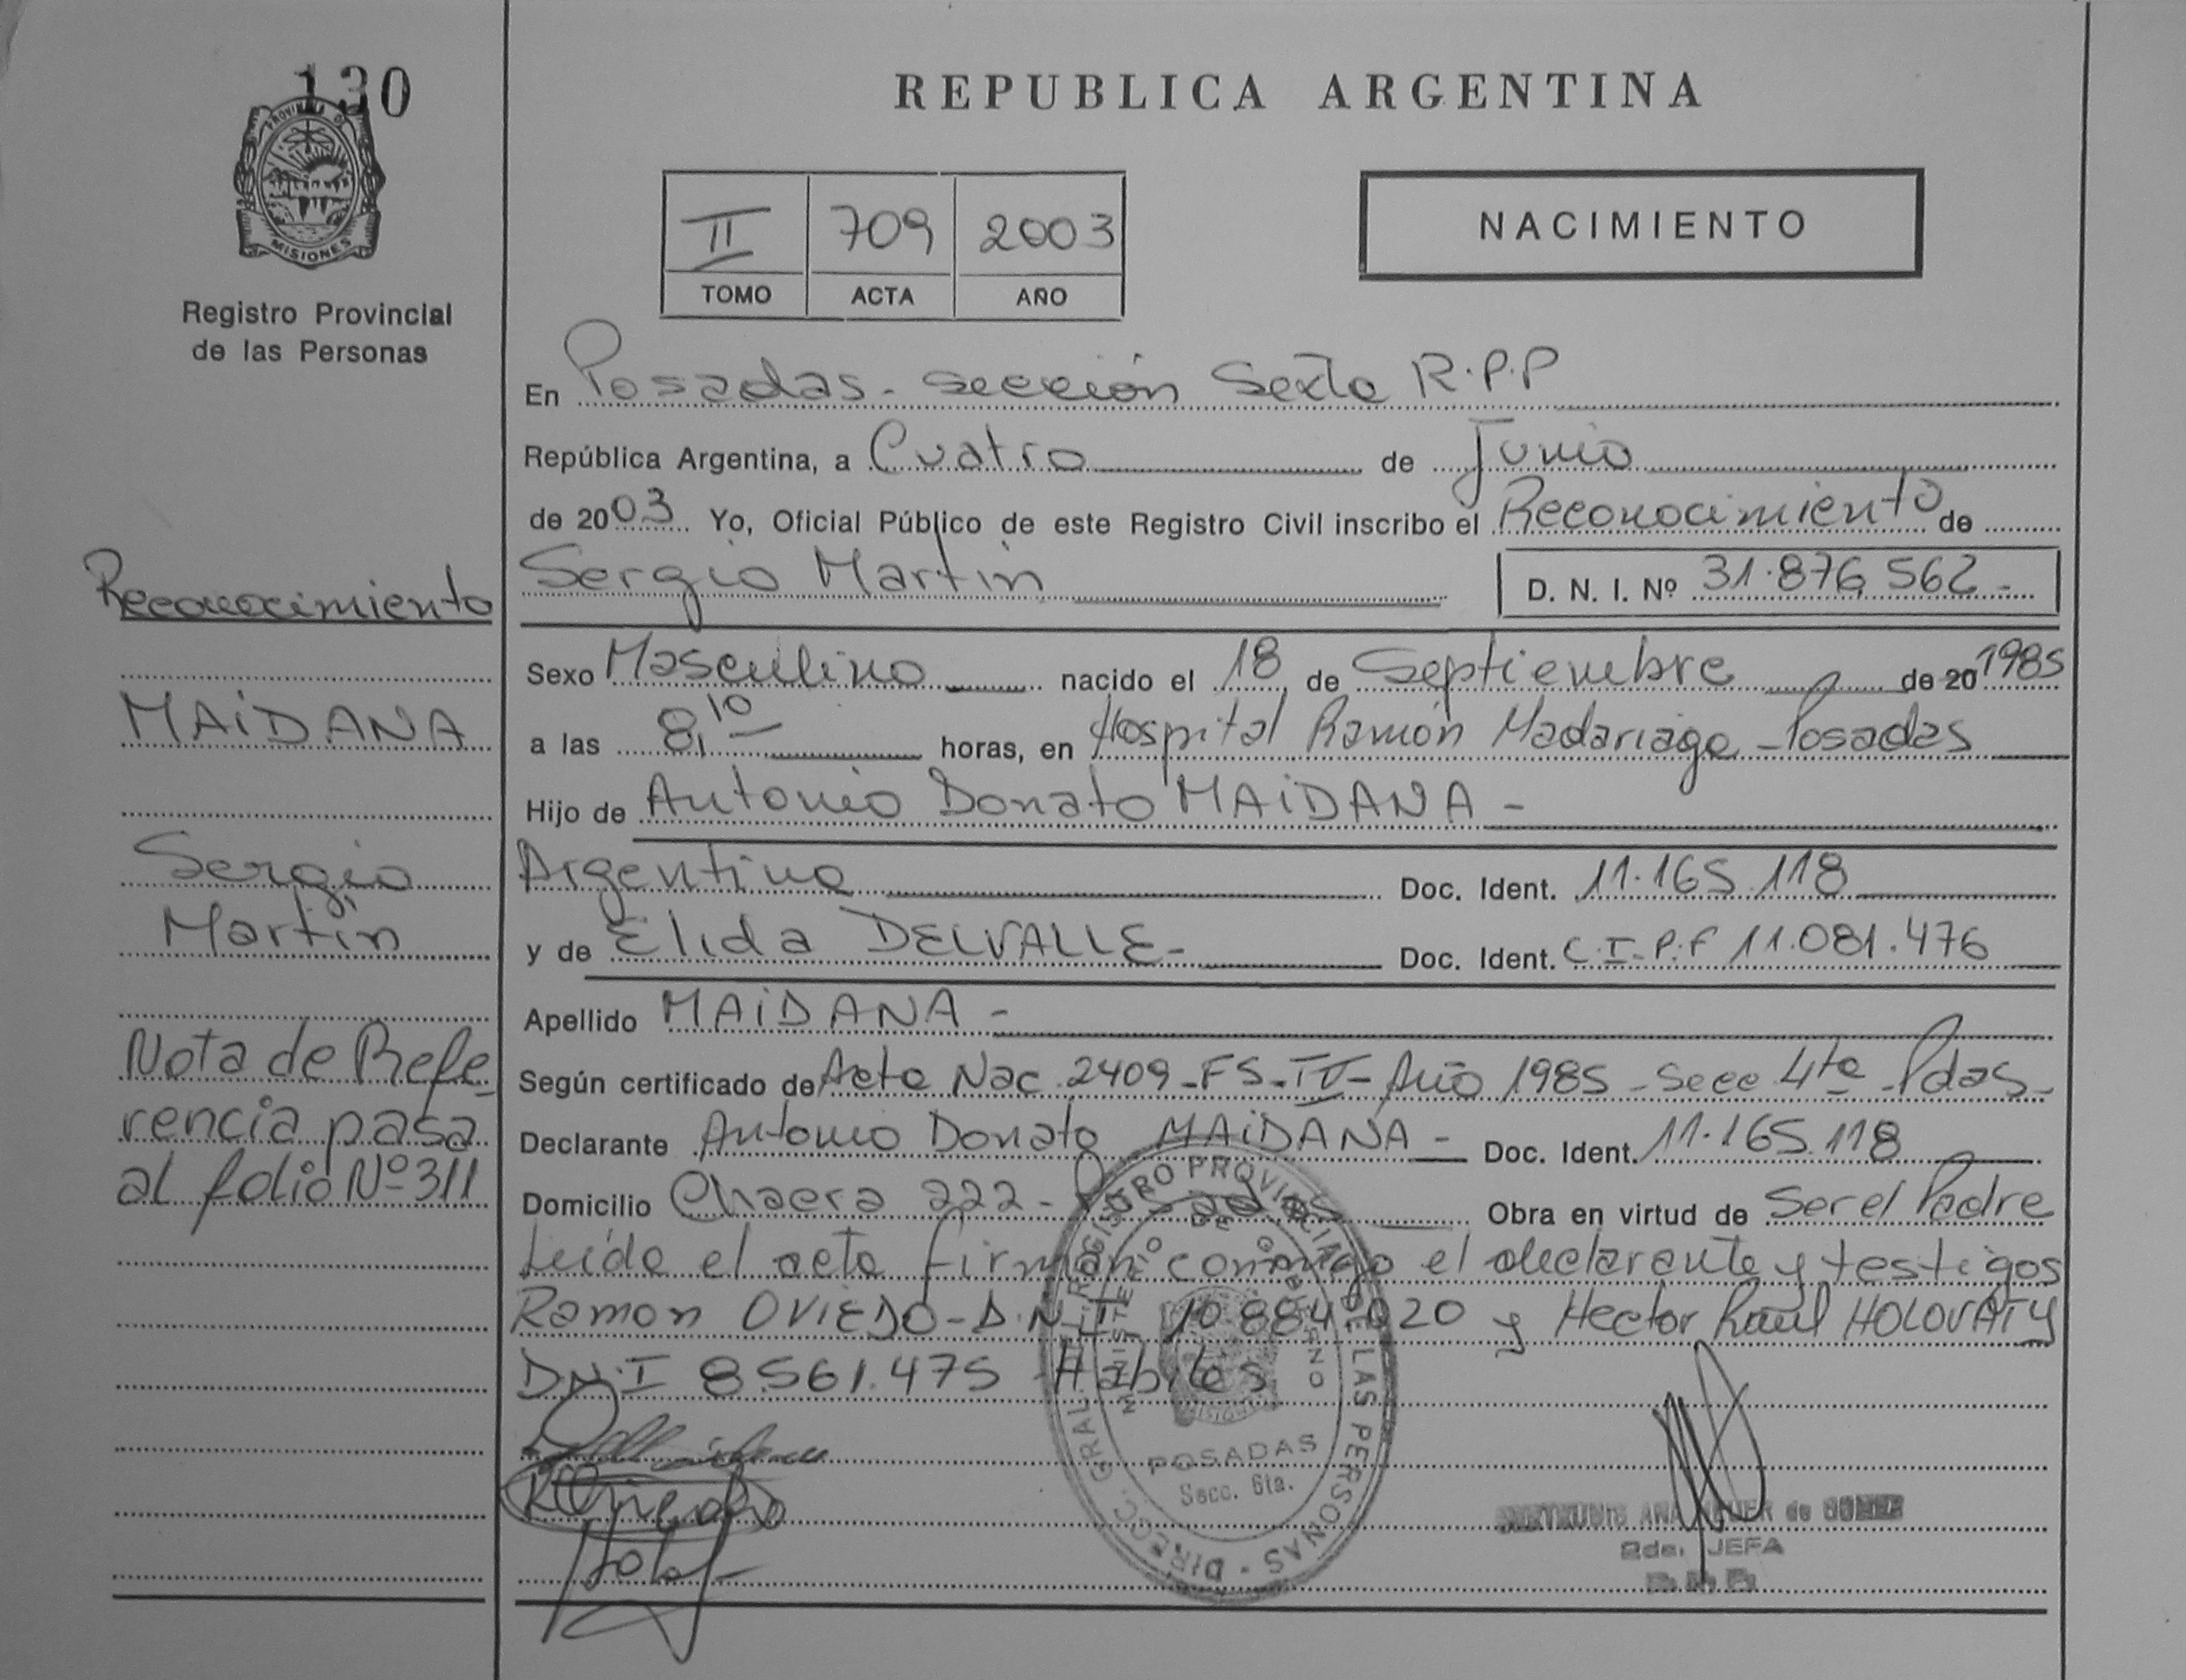 130
PROVINCIA DE
MISIONES
Registro Provincial
de las Personas
REPUBLICA ARGENTINA
II 709 2003
TOMO ACTA AÑO
NACIMIENTO
En Posadas - sección Sexta R.P.P
República Argentina, a Cuatro de Junio
de 2003 Yo, Oficial Público de este Registro Civil inscribo el Reconocimiento de
Sergio Martin D. N. I. Nº 31.876.562-
Sexo Masculino nacido el 18 de Septiembre de 20 1985
a las 8,10 horas, en Hospital Ramón Madariaga - Posadas
Hijo de Antonio Donato MAiDANA -
Argentino Doc. Ident. 11.165.118
y de Elida DELVALLE- Doc. Ident. C.I.P.F 11.081.476
Apellido MAiDANA -
Según certificado de Acta Nac. 2409-FS-IV-Año 1985 - Secc 4ta - Pdas-
Declarante Antonio Donato MAiDANA - Doc. Ident. 11.165.118
Domicilio Chacra 222 - Posadas Obra en virtud de Ser el Padre
Leída el acta firman conmigo el declarante y testigos
Ramon OViEDO-D.N.I. 10.884.020 y Hector Raul HOLOVATY
D.N.I 8.561.475 Habiles
Reconocimiento
MAiDANA
Sergio
Martin
Nota de Refe
rencia pasa
al folio Nº 311
DIRECC. GRAL. REGISTRO PROVINCIAL DE LAS PERSONAS
MINISTERIO DE GOBIERNO
MISIONES
POSADAS
Secc. 6ta.
ANA de GOMEZ
JEFA